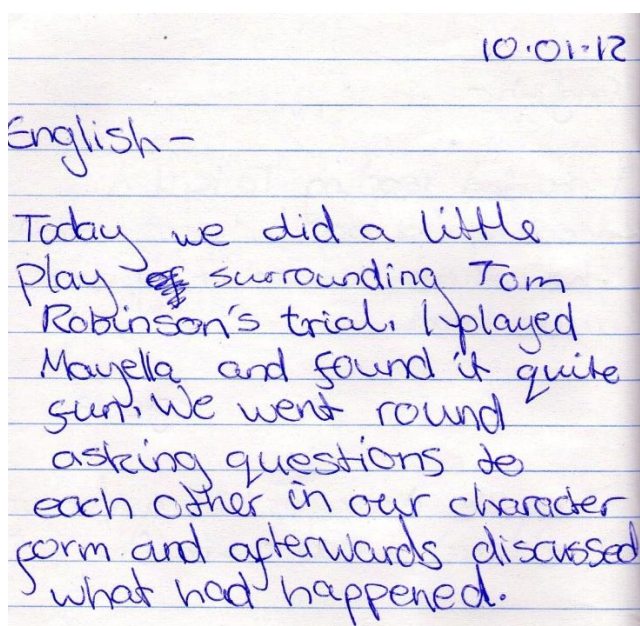 10.01.12
English-
Today we did a little
play surrounding Tom
Robinson's trial. I played
Mayella and found it quite
fun. We went round
asking questions to
each other in our character
form and afterwards discussed
what had happened.